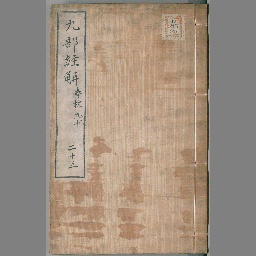 九部經解
春秋 九十
二十三